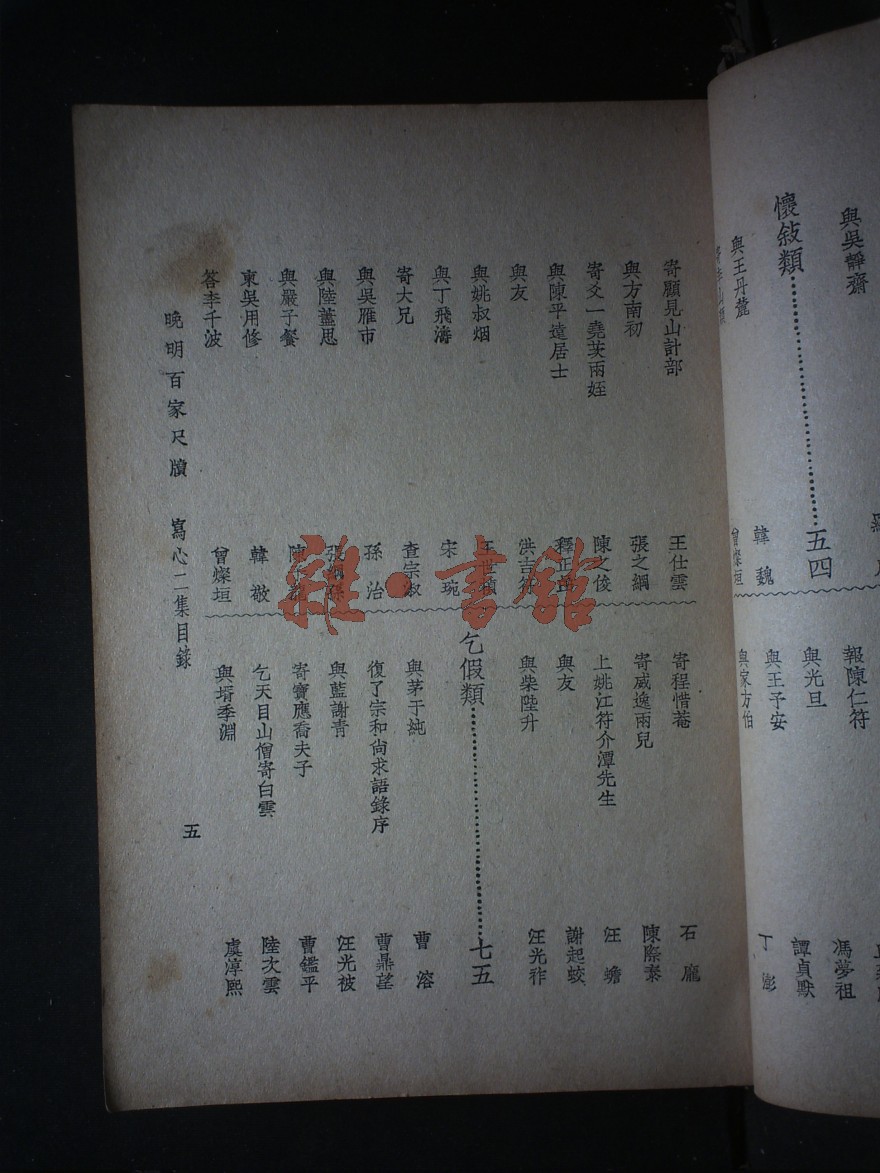 與吳靜齋
懷敍類……五四
與王丹麓
韓魏
曾燦垣
馮夢祖
報陳仁符
譚貞默
與光旦
丁澎
與王予安
與家方伯
寄顧見山計部 王仕雲
與方南初 張之綱
寄爻一堯芙兩姪 陳之俊
與陳平遠居士 釋正嵒
與友 洪吉符
與姚叔烟 王世禎
與丁飛濤 宋琬
寄大兄 查宗淑
與吳雁市 孫治
與陸藎思 張綱孫
與嚴子餐
柬吳用修 韓敬
答李千波 曾燦垣
寄程惜菴 石龐
寄威逸兩兒 陳際泰
上姚江符介潭先生 汪蟾
與友 謝起蛟
與柴陛升 汪光祚
乞假類……七五
與茅于純 曹溶
復了宗和尙求語錄序 曹鼎望
與藍謝青 汪光被
寄寶應喬夫子 曹鑑平
乞天目山僧寄白雲 陸次雲
與壻季淵 虞淳熙
晚明百家尺牘 寫心二集目錄 五
雜·書館